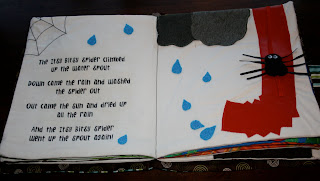 The Itsy Bitsy Spider Climbed
up the water spout
Down came the rain and washed
the spider out
Out came the sun and dried up
all the rain
And the Itsy Bitsy Spider
went up the spout again!